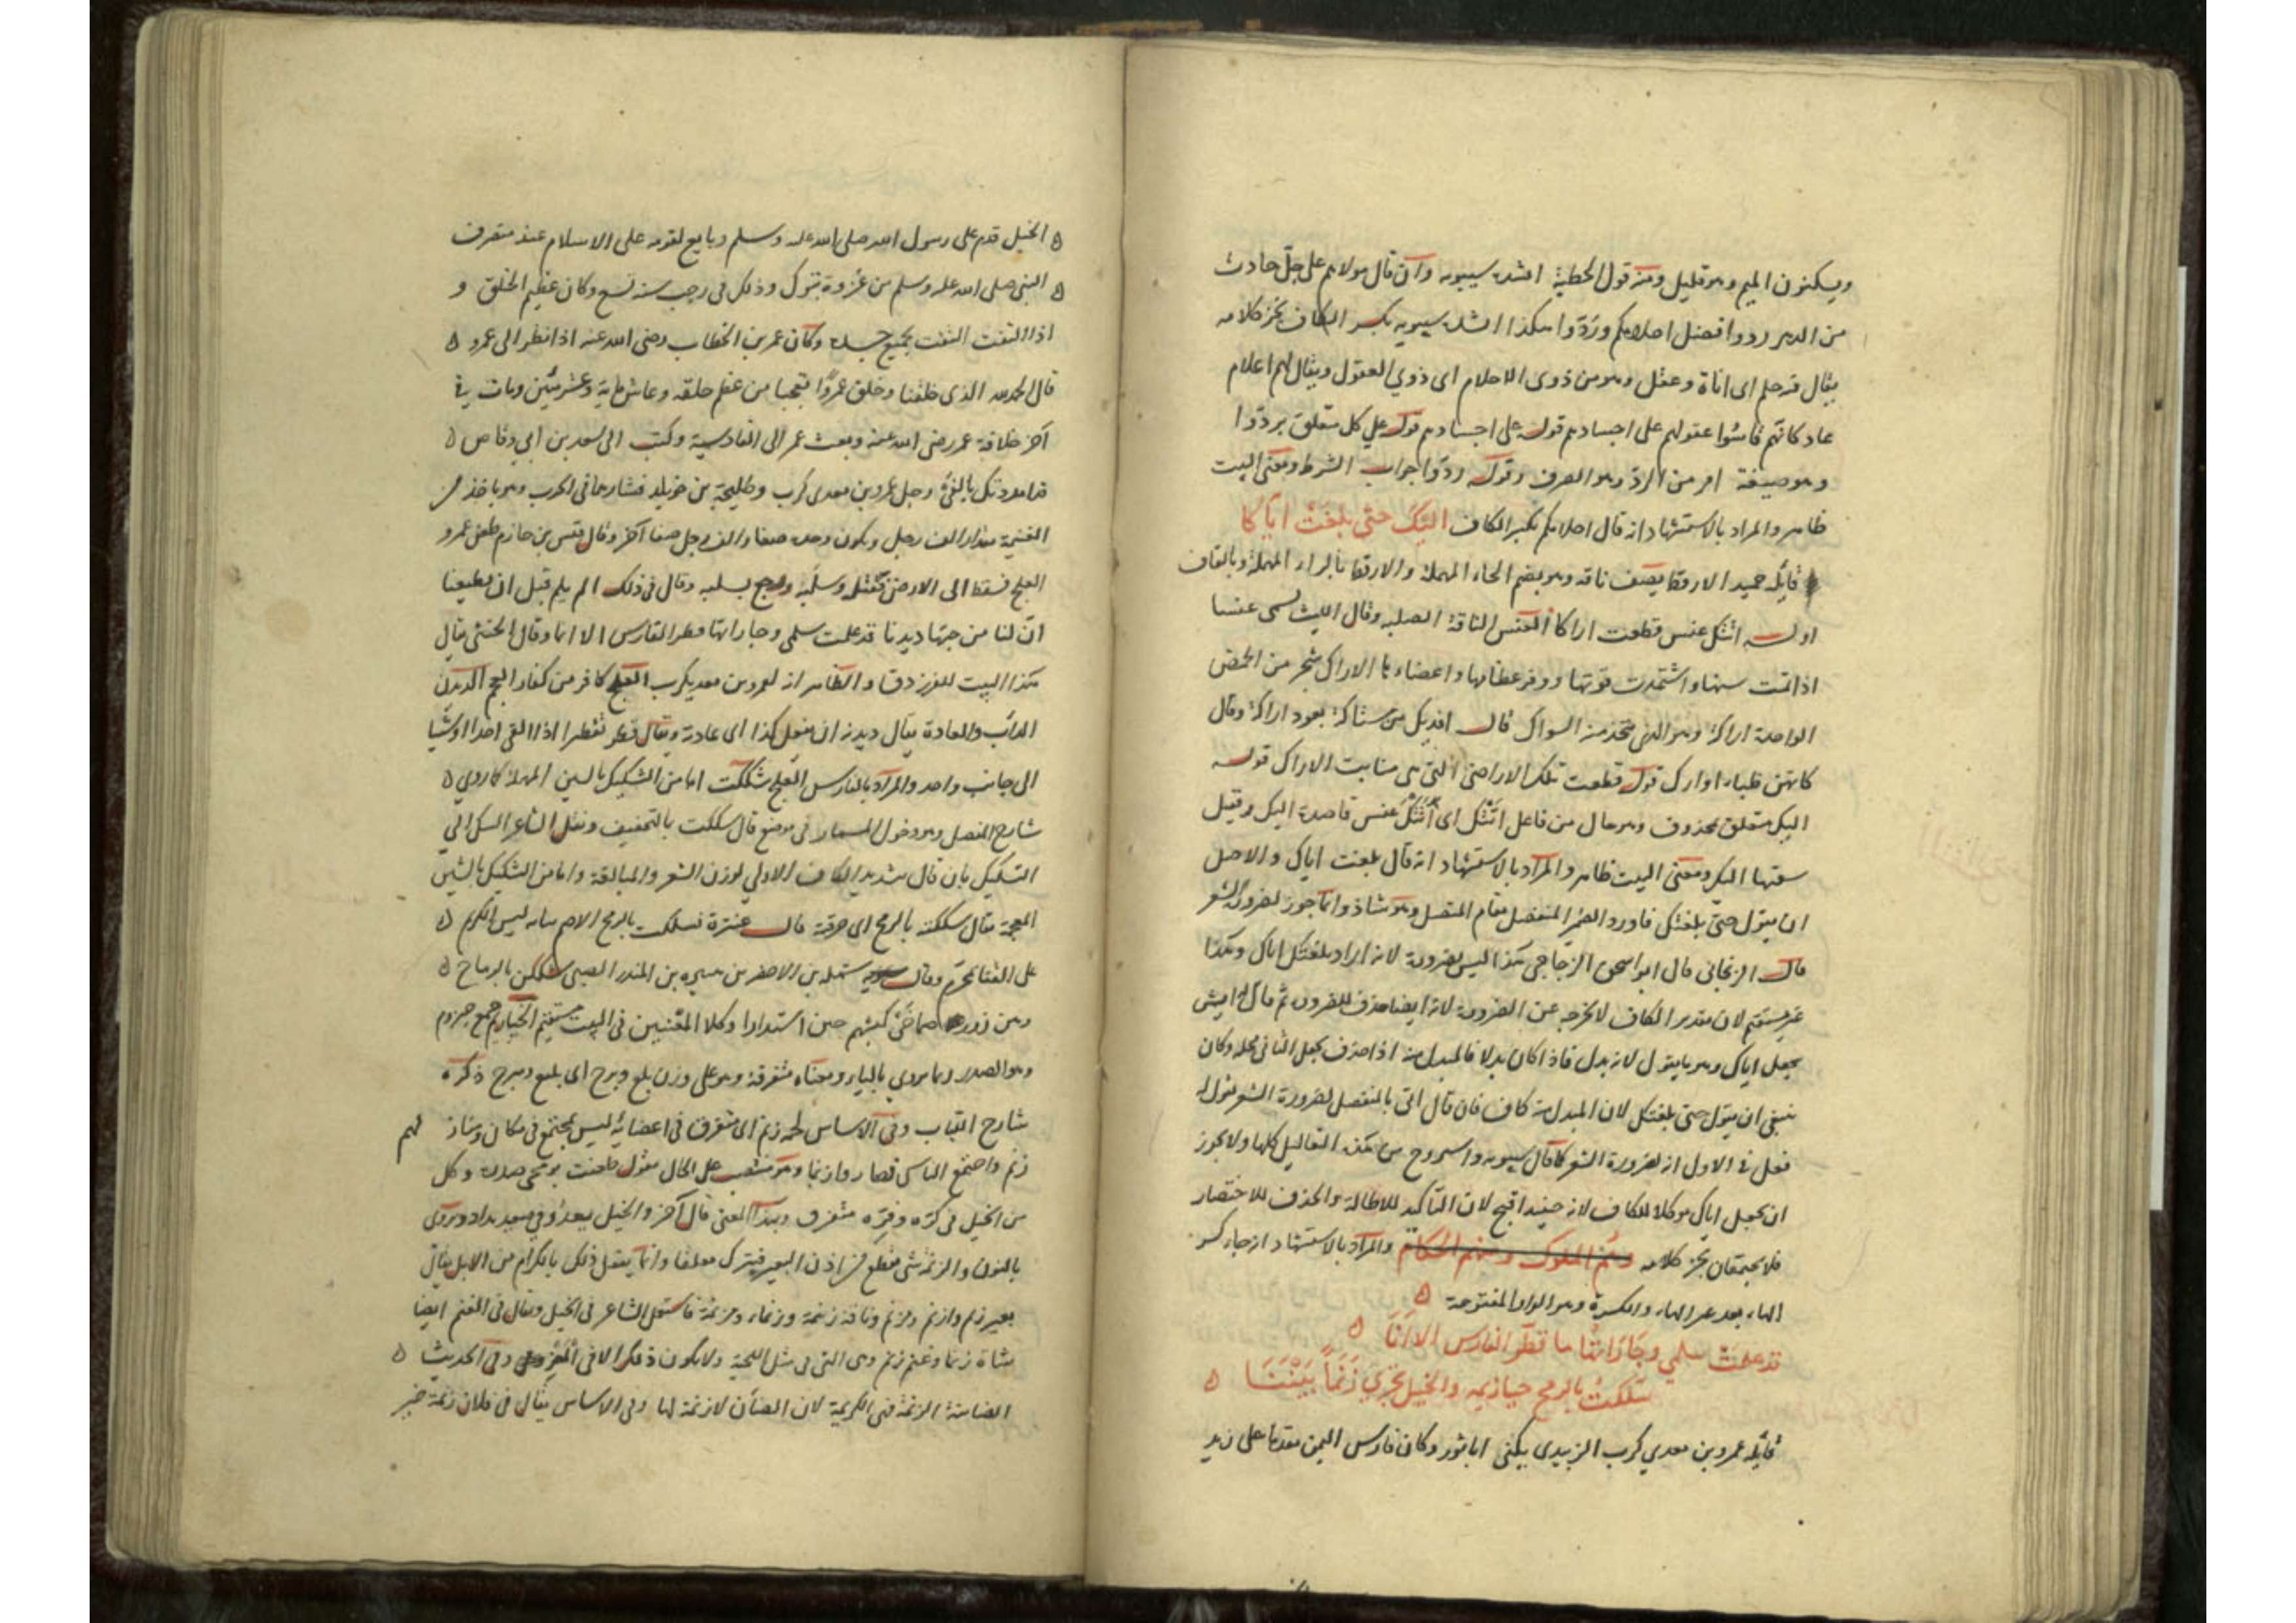 ويسكنون الميم وهو قليل ومنه قول الحطيئة انشده سيبويه وان قال مولاهم على جلّ حادث
من الدهر ردوا فضل احلامكم ردّوا هكذا انشده سيبويه بكسر الكاف بجز كلامه
يقال فيه حلم اى اناة وعقل وهو من ذوى الاحلام اى ذوي العقول ويقال لهم احلام
عاد كانهم قاسوا عقولهم على اجسادهم قوله على اجسادهم قوله علي كل متعلق بردّوا
وهو صيغة امر من الردّ وهو الصرف وقوله ردّوا جواب الشرط ومعنى البيت
ظاهر والمراد بالاستشهاد انه قال احلامكم بكسر الكاف اليك حتى بلغت اياكا
قايله حميد الارقط يصف ناقة وهو بضم الحاء المهملة والارقط بالراء المهملة وبالقاف
اوله اتتك عنس قطعت اراكا العنس الناقة الصلبه وقال الليث تسمى عنسا
اذا تمت سنها واشتدت قوتها ووفر عظامها واعضاءها الاراك شجر من الحمض
الواحدة اراكة وهو الذى يتخذ منه السواك قال افديك من ستاكة بعود اراكة وقال
كانهن ظباء اوارك قوله قطعت تلك الاراضى التى هى منابت الاراك قوله
اليك متعلق بمحذوف وهو حال من فاعل اتتك اى اتتك عنس قاصدة اليك وقيل
سقتها اليك ومعنى البيت ظاهر والمراد بالاستشهاد انه قال بلغت اياك والاصل
ان يقول حتى بلغتك فاورد الضمير المنفصل مقام المتصل وهو شاذ وانما جوز لضرورة الشعر
قال الزنجانى قال ابو اسحق الزجاجي هذا ليس بضرورة لانه اراد بلغتك اياك وهكذا
غير مستقيم لان تقدير الكاف لا يخرجه عن الضرورة لانه ايضا حذف للضرورة ثم قال
يجعل اياك وهو ما يقول لانه بدل فاذا كان بدلا فالمبدل منه اذا حذف يجعل الثانى محله وكان
ينبغى ان يقول حتى بلغتك لان المبدل منه كاف فان قال اتى بالمنفصل لضرورة الشعر نقول له
فعل فى الاول انه لضرورة الشعر كما قال سيبويه واسروح من هذه التعاليل كلها ولا يجوز
ان يجعل اياك موكدا للكاف لانه حينئذ اقبح لان التاكيد للاطالة والحذف للاختصار
فلا يجتمعان بجز كلامه منهم الملوك ومنهم الحكام والمراد بالاستشهاد انه جاء كسر
الهاء بعد عبر الهاء والكسرة وهو الواو المفتوحة ه
قد علمت سلمى وجاراتها ما قطر الفارس الا انا ه
شككت بالرمح حيازيمه والخيل تجري زيما بيننا ه
قايله عمرو بن معدي كرب الزبيدى يكنى ابا ثور وكان فارس اليمن مقدما على زيد
الخيل قدم على رسول الله صلى الله عليه وسلم وبايع لقومه على الاسلام عند منصرف
النبى صلى الله عليه وسلم من غزوة تبوك وذلك فى رجب سنه تسع وكان عظيم الخلق و
اذا التفت التفت بجميع جسده وكان عمر بن الخطاب رضى الله عنه اذا نظر الى عمرو ه
قال الحمد لله الذى خلقنا وخلق عمروًا تعجبا من عظم خلقه وعاش ماية وعشر سنين ومات في
آخر خلافة عمر رضى الله عنه وبعث عمر الى القادسية وكتب الى سعد بن ابي وقاص ه
قد امددتك بالفي رجل عمرو بن معدى كرب وطليحة بن خويلد فشاورهما فى الحرب وهو ياخذ من
الغنيمة مقدار الف رجل ويكون وحده صفا والف رجل صفا آخر وقال قيس بن حازم طعن عمرو
العلج فسقط الى الارض فقتله وسلبه ورجع بسلبه وقال فى ذلك الم يلم قبل ان يطيعنا
انّ لنا من حبها ديدنا قد علمت سلمى وجاراتها ما قطر الفارس الا انا وقال الخنثى يقال
هذا البيت للفرزدق والظاهر انه لعمرو بن معديكرب العلج كافر من كفار العجم الديدن
الداب والعادة يقال ديدنه ان يفعل كذا اى عادته ويقال قطر تقطرا اذا القى احدا او شيا
الى جانب واحد والمراد بالفارس العلج شككت اما من التشكيك بالسين المهملة كما روي ه
شارح المفصل وهو دخول المسمار فى موضع قال سككت بالتخفيف ونقل الشاعر السك الى
التسكيك بان قال بتشديد الكاف الاولي لوزن الشعر والمبالغة واما من التشكيك بالشين
المعجمة يقال شككته بالرمح اى خرقته قال عنترة فشككت بالرمح الاصم ثيابه ليس الكريم ه
على القنا بمحرّم وقال شمله بن الاخضر بن هبيره بن المنذر الضبى شككن بالرماح ه
وهن زور صماخَى كبشهم حين استدارا وكلا المعنيين فى البيت مستقيم الحيازيم جمع حيزوم
وهو الصدر زيما يروي بالياء ومعناه متفرقة وهو على وزن
شارح اللباب وفى الاساس لحمه زيم اى متفرق فى اعضائه ليس بمجتمع فى مكان وشاز لهم
زيم واجتمع الناس فصاروا زيما وهو منتصب على الحال يقول طعنت بالرمح صدره وكل
من الخيل فى كره وفره متفرق وبهذا المعنى قال آخر والخيل يعدو في بداد ويروى
بالنون والزنمة شى يقطع من اذن البعير فيترك معلقا وانما يفعل ذلك بالكرام من الابل يقال
بعير زنم وازنم ومزنم وناقة زنمة وزنماء ومزنمة فاستعمل الشاعر فى الخيل ويقال فى الغنم ايضا
شاة زنما وغنم زنم وهى التى لها مثل اللحية ولا يكون ذلك الا فى المعز وفى الحديث ه
الضاينة الزنمة فهى الكريمة لان الضان لا زنمة لها وفى الاساس يقال فى فلان زنمة خير